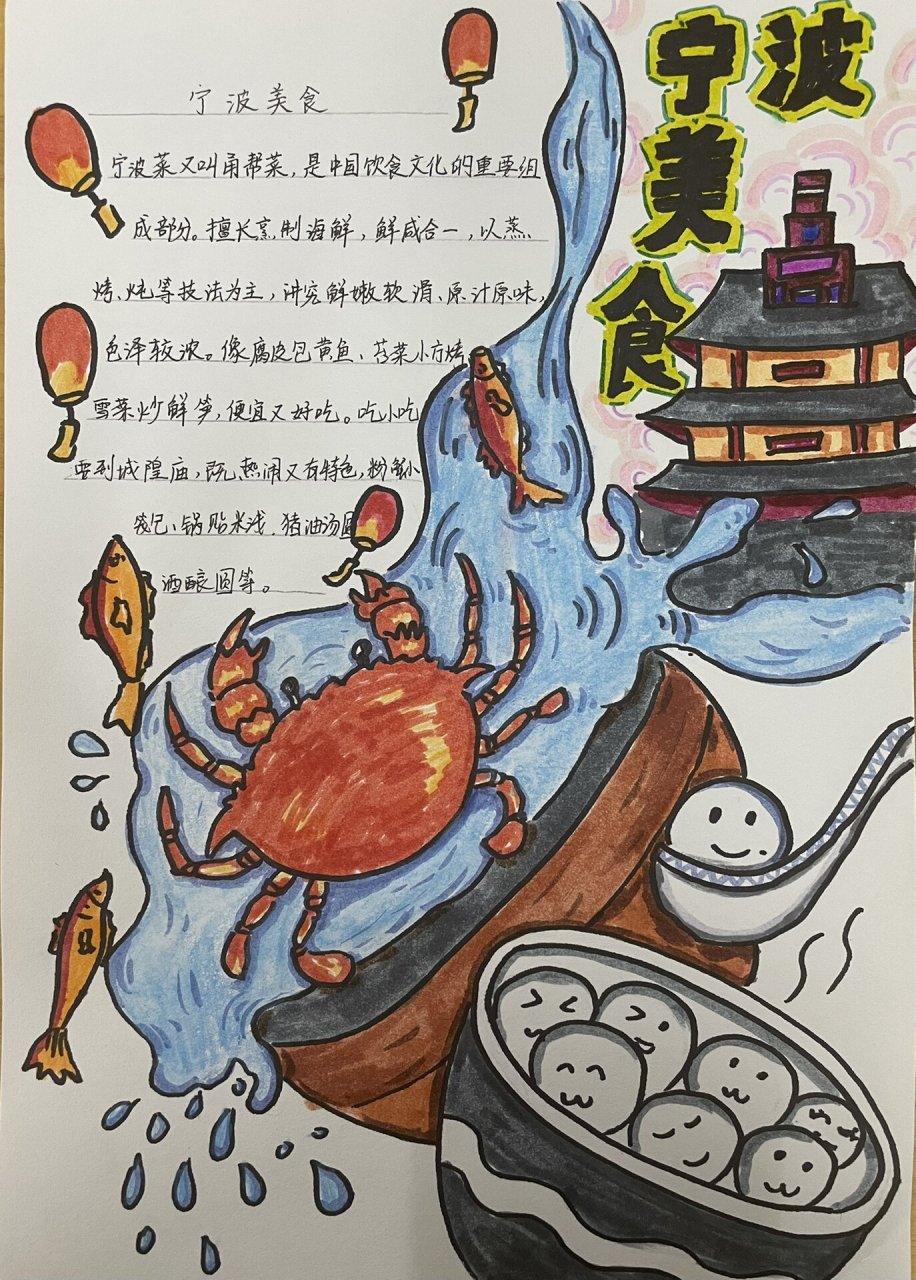 宁波美食
宁波美食
宁波菜又叫甬帮菜，是中国饮食文化的重要组
成部分。擅长烹制海鲜，鲜咸合一，以蒸、
烤、炖等技法为主，讲究鲜嫩软滑、原汁原味，
色泽较浓。像腐皮包黄鱼、苔菜小方烤、
雪菜炒鲜笋，便宜又好吃。吃小吃
要到城隍庙，既热闹又有特色，粉
包、锅贴米浅、猪油汤圆
酒酿圆等。